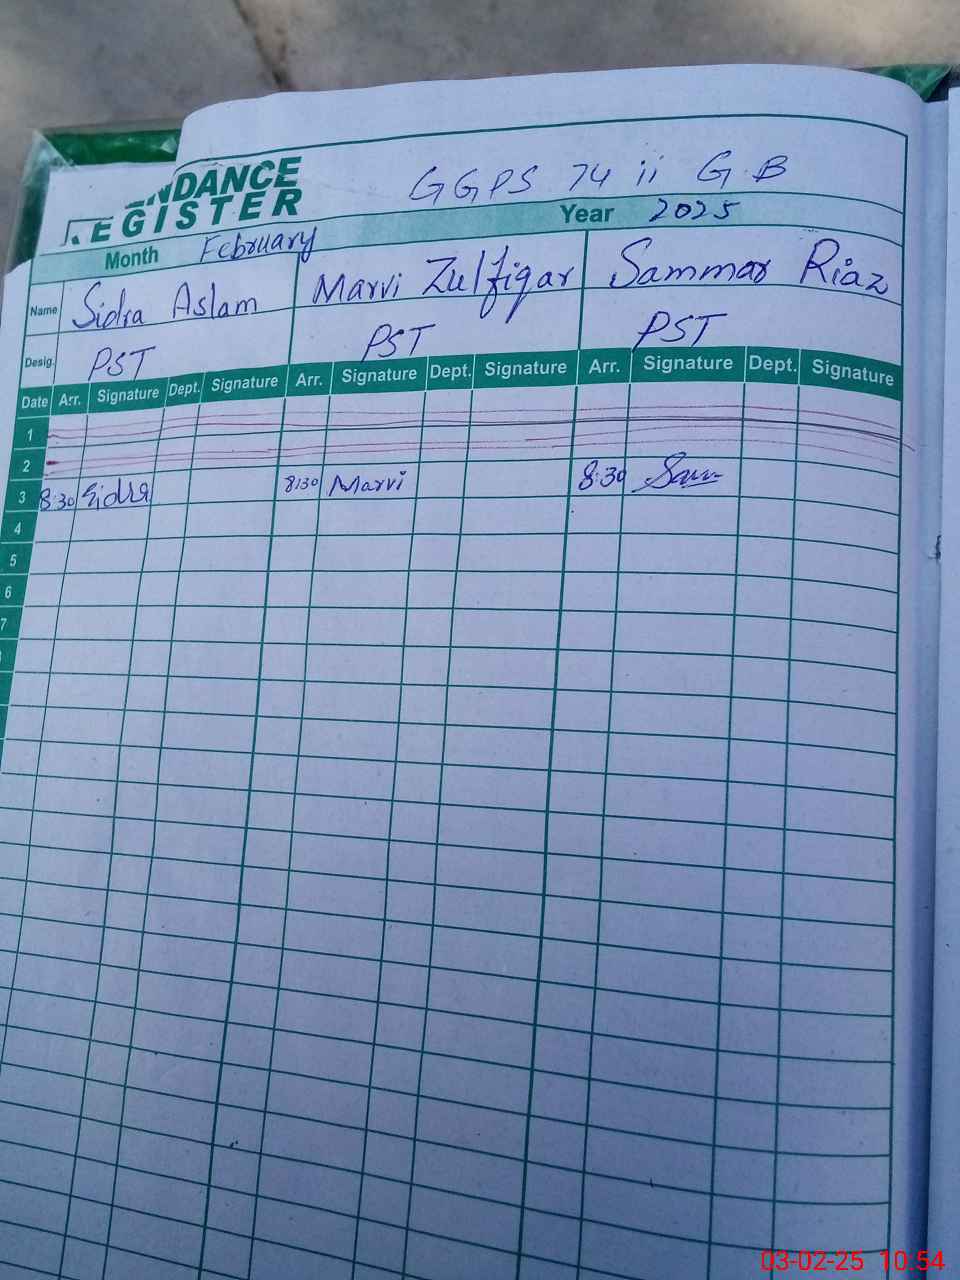 GGPS 74 ii GB
NDANCE
REGISTER
Month February Year 2025
Name Sidra Aslam Marvi Zulfiqar Sammar Riaz
Desig. PST PST PST
Date Arr. Signature Dept. Signature Arr. Signature Dept. Signature Arr. Signature Dept. Signature
1
2
3 8:30 Sidra 8:30 Marvi 8:30 Sam
4
5
6
7
03-02-25 10:54